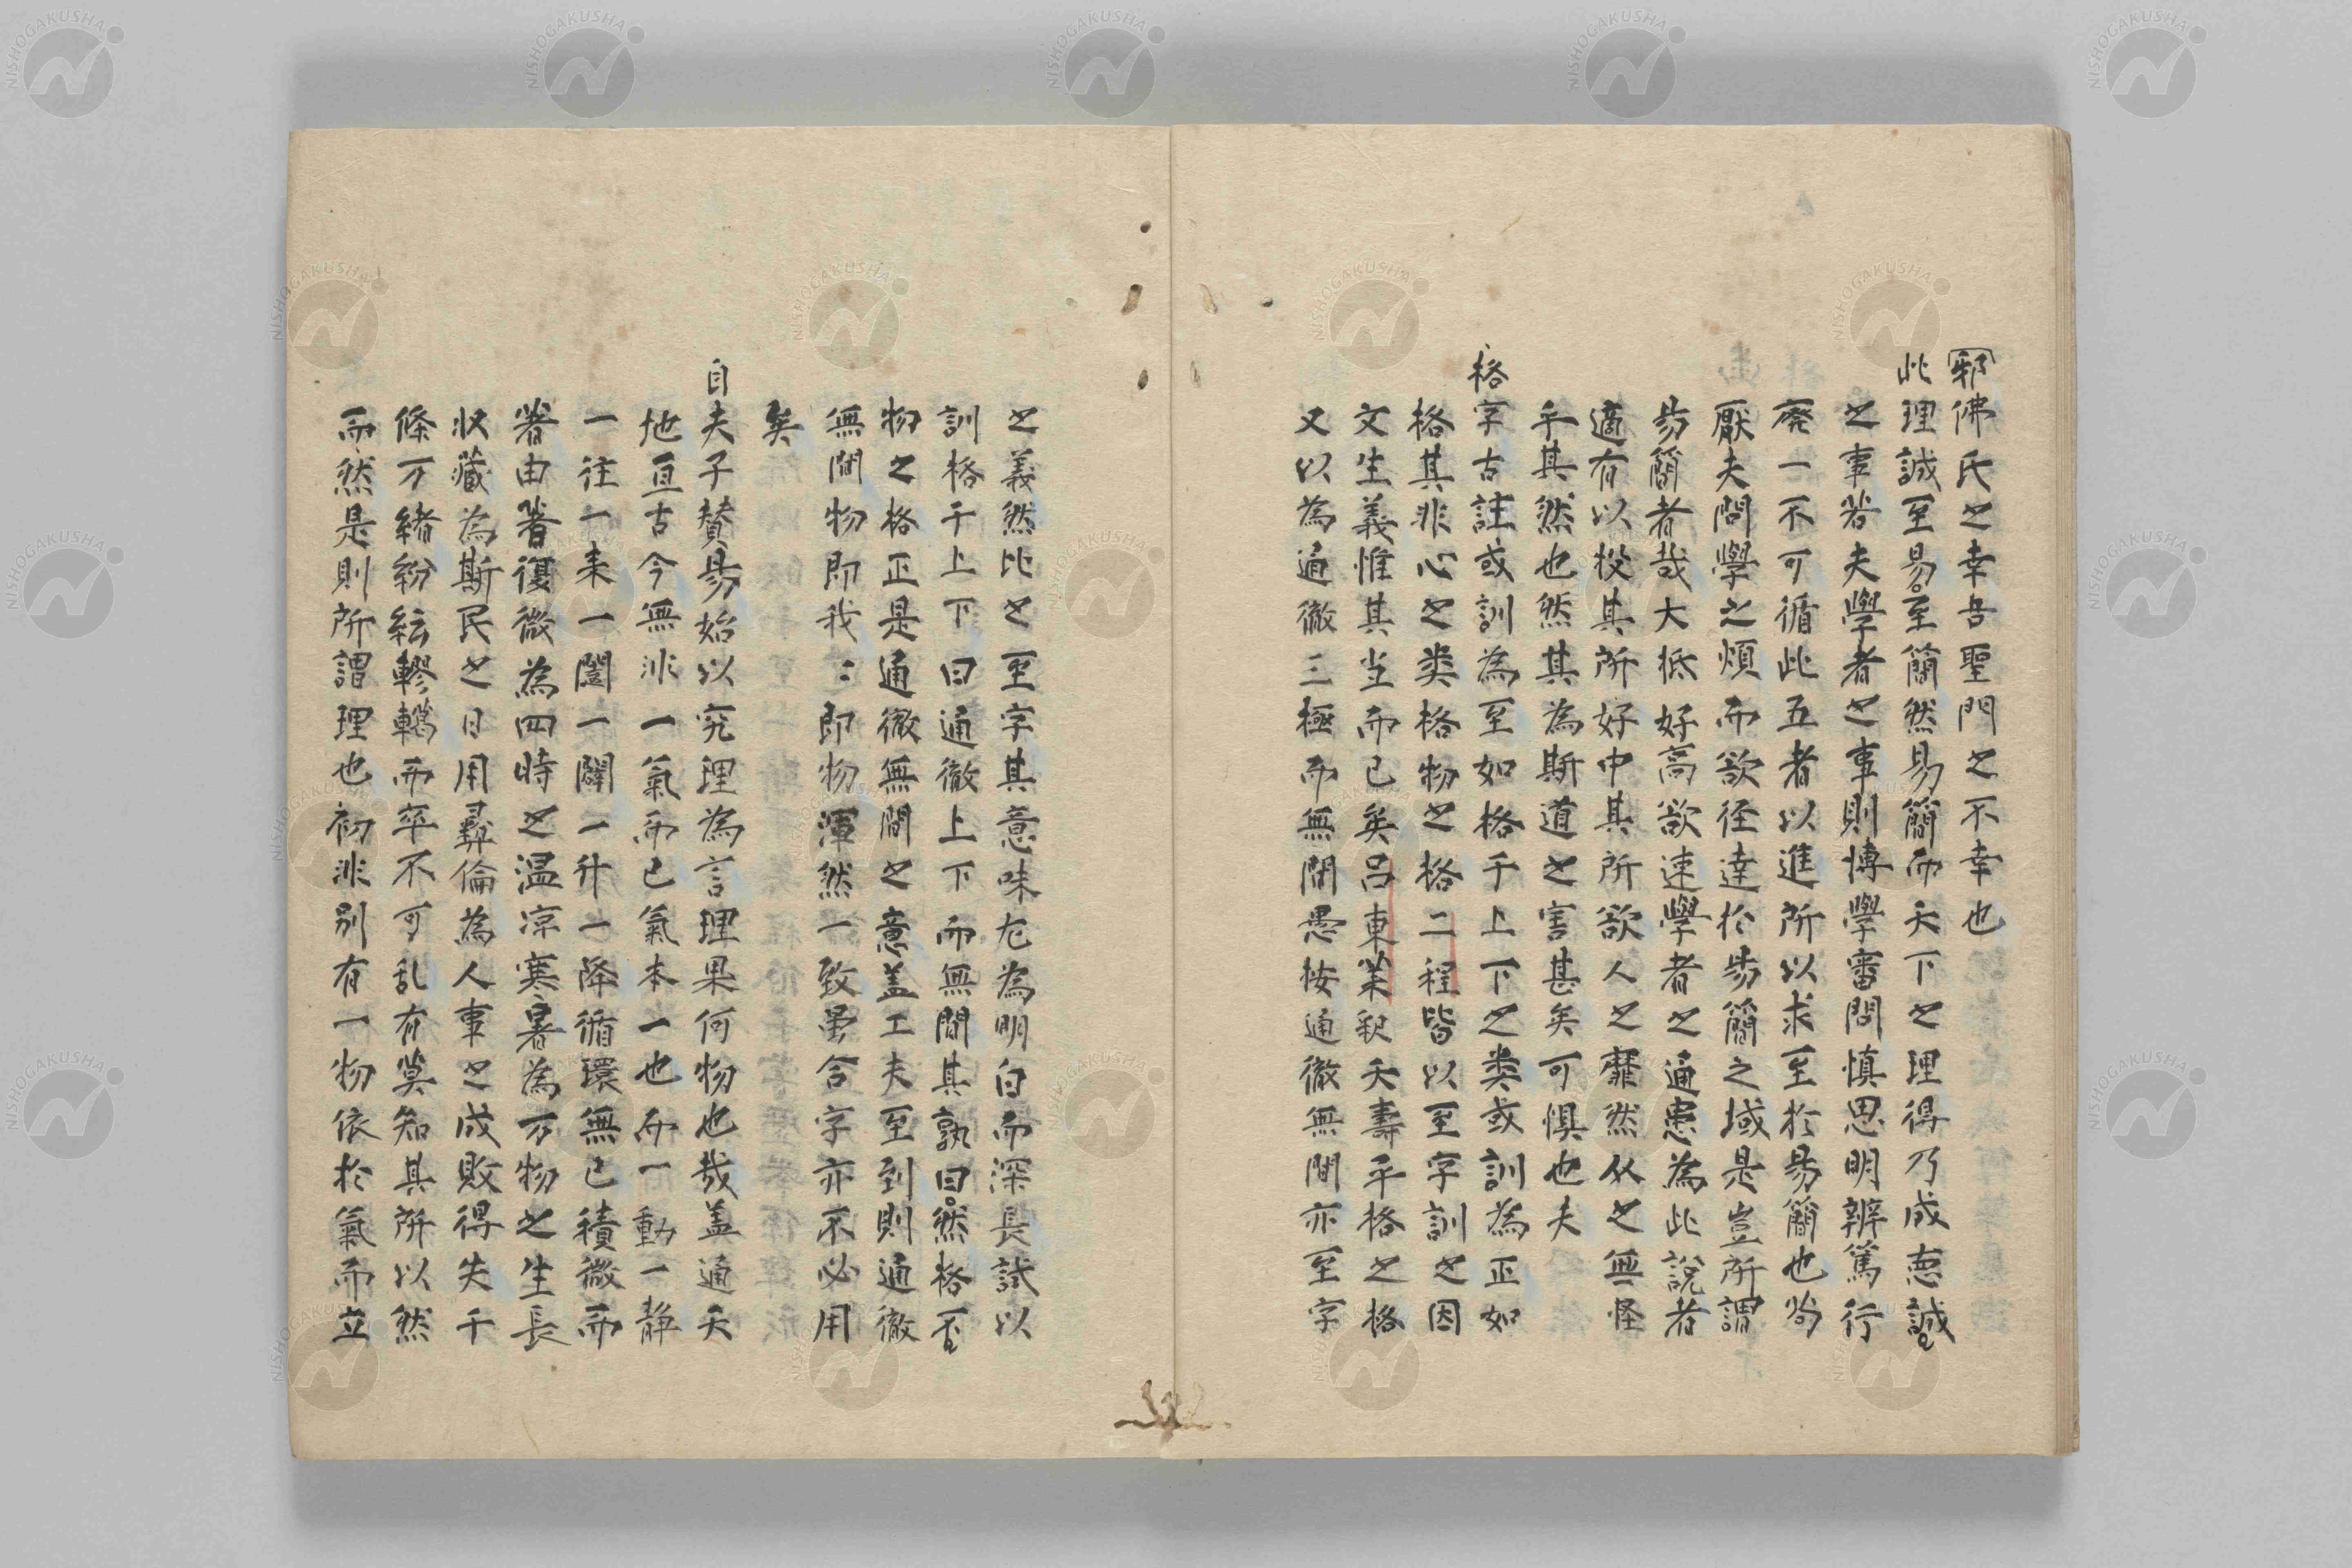 邪佛氏之幸吾聖門之不幸也
此理誠至易至簡然易簡而天下之理得乃成悳誠
之事若夫學者之事則博學審問慎思明辨篤行
廃一不可循此五者以進所以求至於易簡也苟
厭夫問學之煩而欲徑達於易簡之域是豈所謂
易簡者哉大抵好高欲速學者之通患為此説者
適有以投其所好中其所欲人之靡然从之無怪
乎其然也然其為斯道之害甚矣可惧也夫
格字古註或訓為至如格于上下之类或訓為正如
格其非心之类格物之格二程皆以至字訓之因
文生義惟其当而已矣呂東莱釈天壽平格之格
又以為通徹三極而無間愚按通徹無間亦至字
之義然比之至字其意味尤為明白而深長試以
訓格于上下曰通徹上下而無間其孰曰然格不
物之格正是通徹無間之意盖工夫至到則通徹
無間物即我〻即物渾然一致虽合字亦不必用
矣
自夫子賛易始以究理為言理果何物也哉盖通天
地亘古今無非一氣而已氣本一也而一動一静
一往一来一闔一闢一升一降循環無已積微而
著由著復微為四時之温凉寒暑為万物之生長
收藏為斯民之日用彛倫為人事之成敗得失千
條万緒紛紜轇轕而卒不可乱有莫知其所以然
而然是則所謂理也初非別有一物依於氣而立
NISHOGAKUSHA